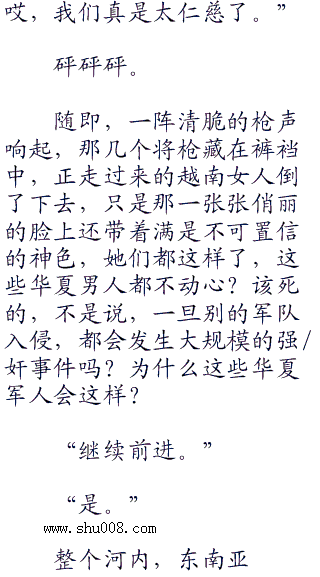 哎，我们真是太仁慈了。”
砰砰砰。
随即，一阵清脆的枪声
响起，那几个将枪藏在裤裆
中，正走过来的越南女人倒
了下去，只是那一张张俏丽
的脸上还带着满是不可置信
的神色，她们都这样了，这
些华夏男人都不动心？该死
的，不是说，一旦别的军队
入侵，都会发生大规模的强/
奸事件吗？为什么这些华夏
军人会这样？
“继续前进。”
“是。”
www.shu008.com
整个河内，东南亚